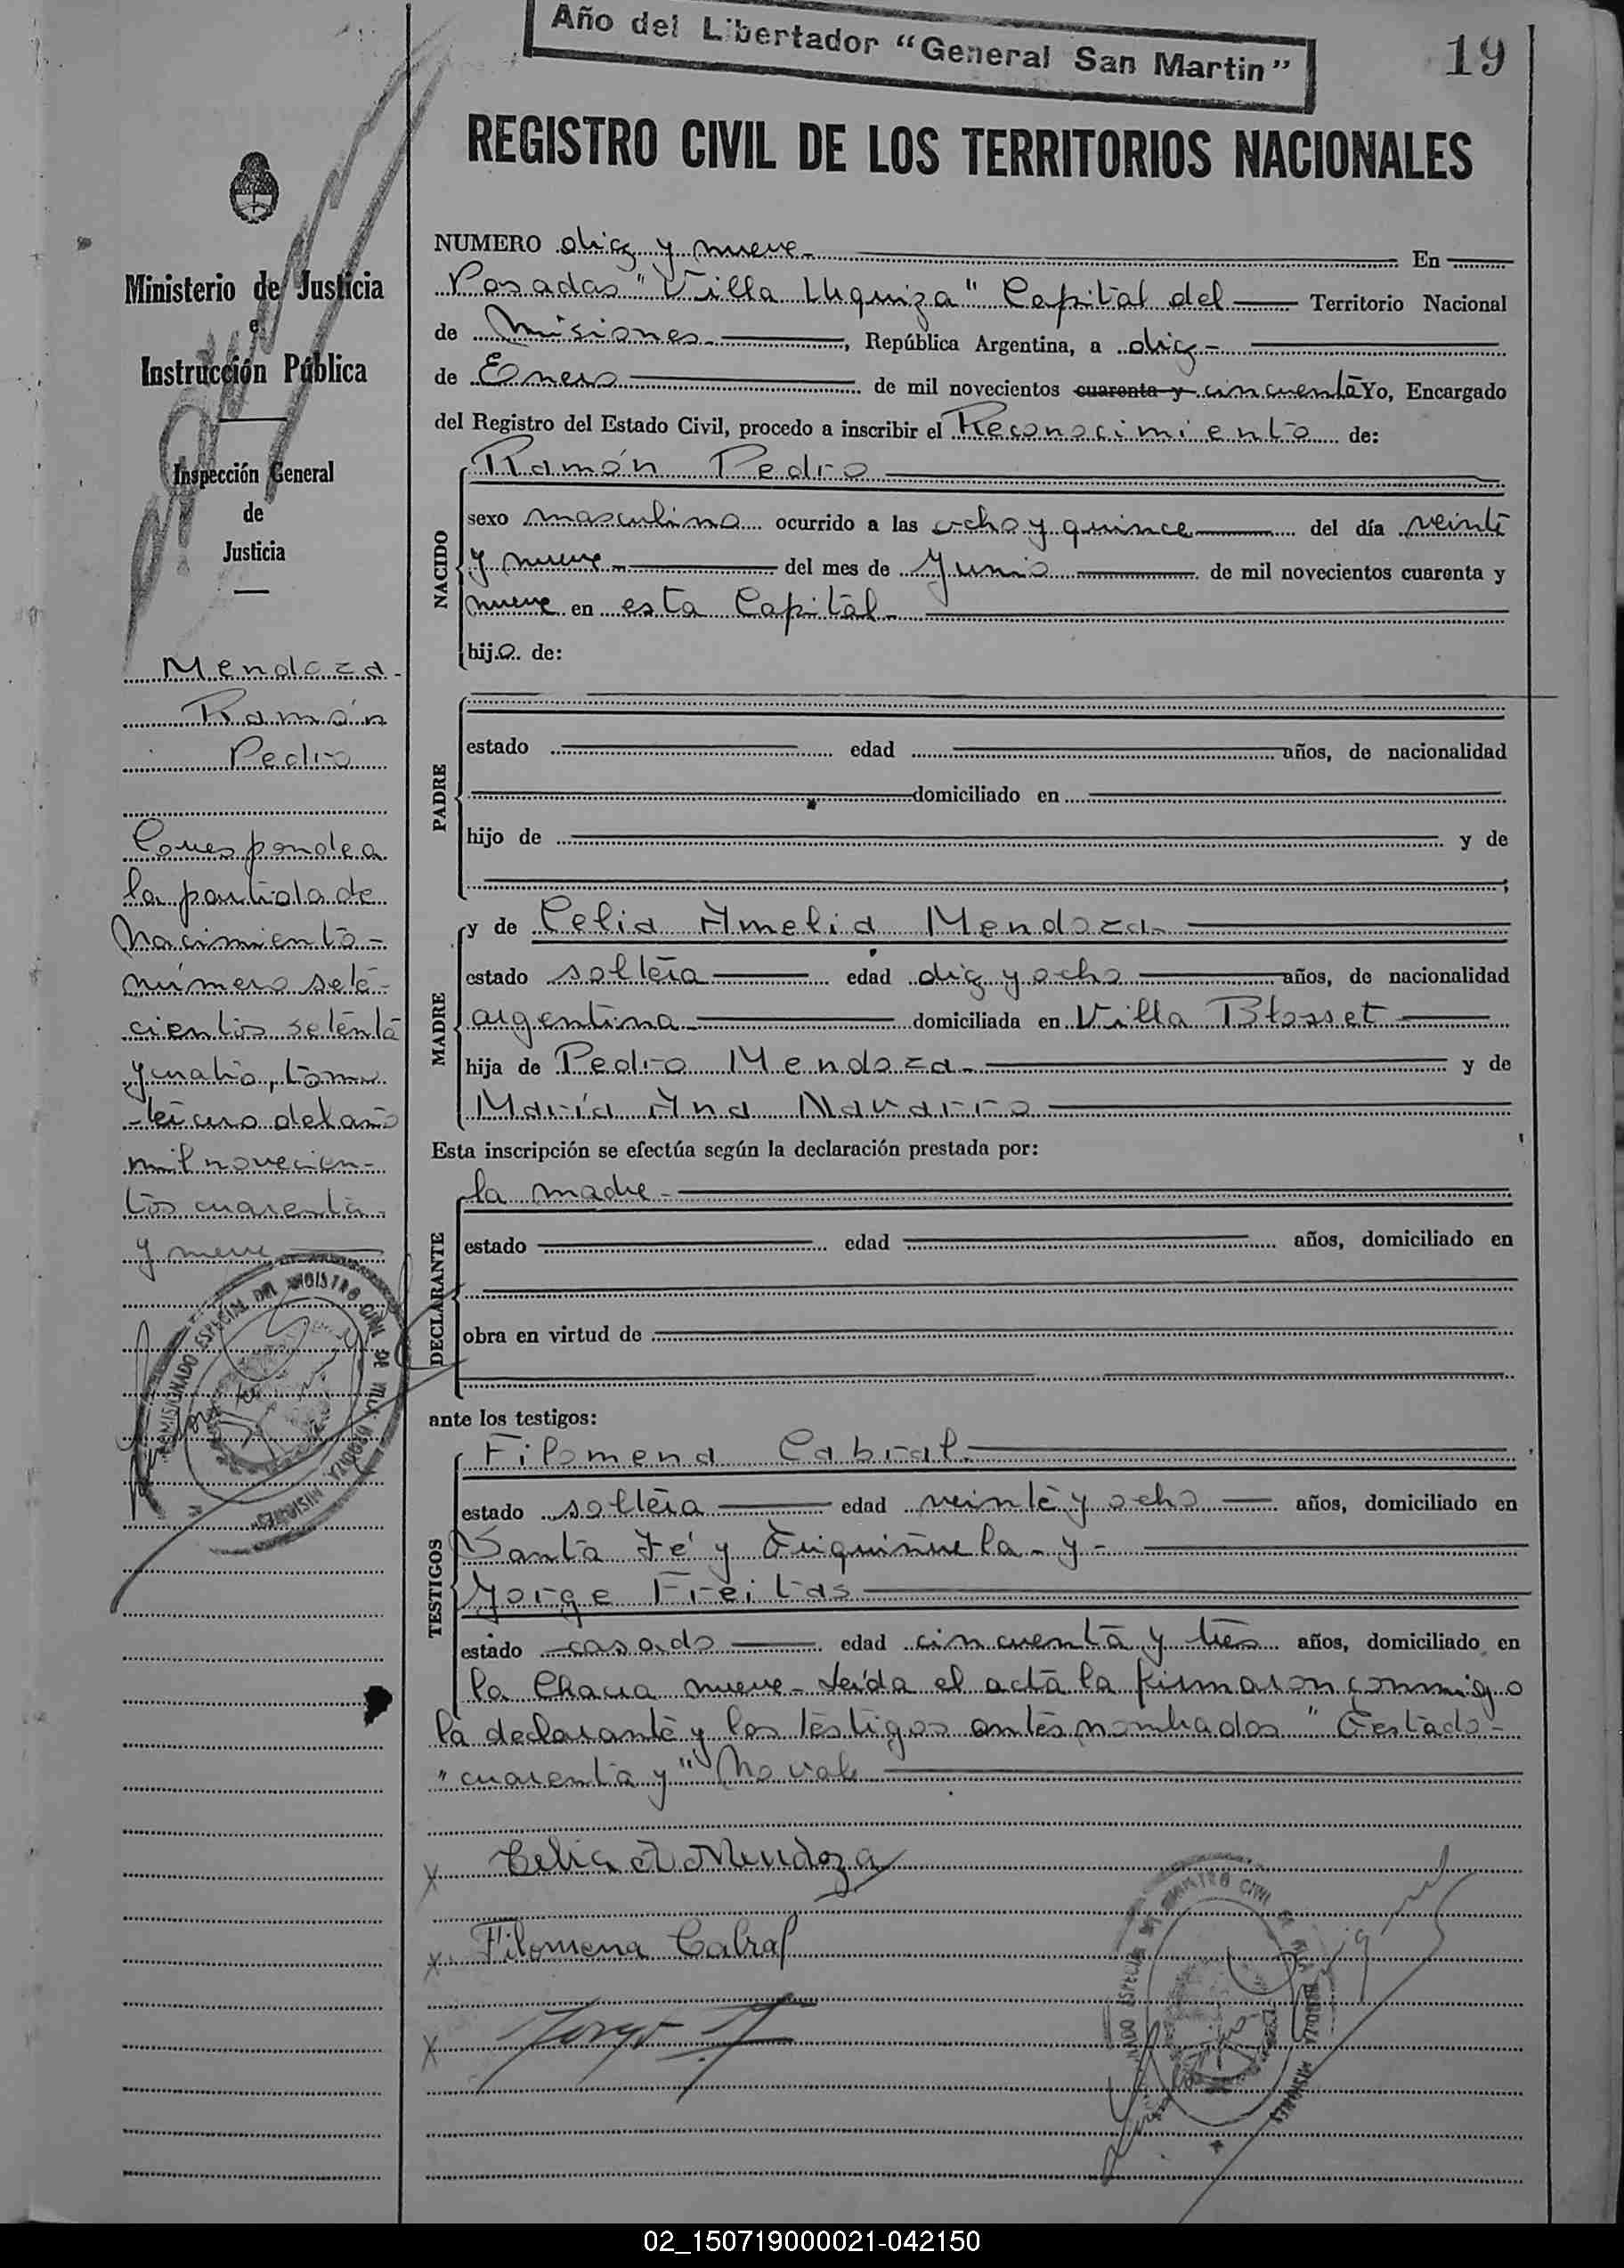 Año del Libertador "General San Martin"
19
REGISTRO CIVIL DE LOS TERRITORIOS NACIONALES
Ministerio de Justicia
e
Instrucción Pública
Inspección General
de
Justicia
Mendoza
Ramón
Pedro
Corresponde a
la partida de
Nacimiento -
número sete-
cientos setenta
y cuatro, tomo
tercero del año
mil novecien-
tos cuarenta
y nueve
COMISIONADO ESPECIAL DEL REGISTRO CIVIL DE VILLA URQUIZA MISIONES
NUMERO diez y nueve - En
Posadas "Villa Urquiza" Capital del Territorio Nacional
de Misiones - , República Argentina, a diez -
de Enero de mil novecientos cuarenta y cincuenta Yo, Encargado
del Registro del Estado Civil, procedo a inscribir el Reconocimiento de:
NACIDO
Ramón Pedro
sexo masculino ocurrido a las ocho y quince del día veinte
y nueve - del mes de Junio de mil novecientos cuarenta y
nueve en esta Capital -
hijo de:
PADRE
estado edad años, de nacionalidad
domiciliado en
hijo de y de
;
MADRE
y de Celia Amelia Mendoza -
estado soltera edad diez y ocho años, de nacionalidad
argentina - domiciliada en Villa Blosset
hija de Pedro Mendoza - y de
María Ana Navarro
Esta inscripción se efectúa según la declaración prestada por:
DECLARANTE
la madre -
estado edad años, domiciliado en
obra en virtud de
ante los testigos:
TESTIGOS
Filomena Cabral -
estado soltera edad veinte y ocho años, domiciliado en
Santa Fé y - y -
Jorge Freitas
estado casado edad cincuenta y tres años, domiciliado en
la Chacra nueve - Leída el acta la firmaron conmigo
la declarante y los testigos antes nombrados "Testado -
"cuarenta y" No vale
x Celia A Mendoza
x Filomena Cabral
x Jorge
ESPECIAL DEL REGISTRO CIVIL DE VILLA URQUIZA MISIONES
02_150719000021-042150